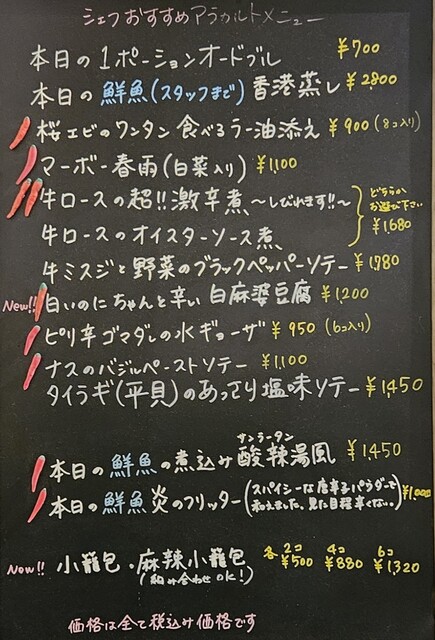 シェフおすすめアラカルトメニュー
本日の1ポーションオードブル ¥700
本日の鮮魚(スタッフまで)香港蒸し ¥2800
桜エビのワンタン食べるラー油添え ¥900(8コ入り)
マーボー春雨(白菜入り) ¥1,100
牛ロースの超!!激辛煮〜しびれます!!〜 どちらか
お選び下さい
牛ロースのオイスターソース煮 ¥1,680
牛ミスジと野菜のブラックペッパーソテー ¥1,780
New!! 白いのにちゃんと辛い 白麻婆豆腐 ¥1,200
ピリ辛ゴマダレの水ギョーザ ¥950(6コ入り)
ナスのバジルペーストソテー ¥1,100
タイラギ(平貝)のあっさり塩味ソテー ¥1,450
サンラータン
本日の鮮魚の煮込み酸辣湯風 ¥1,450
本日の鮮魚炎のフリッター(スパイシーな唐辛子パウダーで
和えました。見た目程辛くない。)
New!! 小籠包・麻辣小籠包 各 2コ ¥500 4コ ¥880 6コ ¥1,320
(組み合わせOK!)
価格は全て税込み価格です